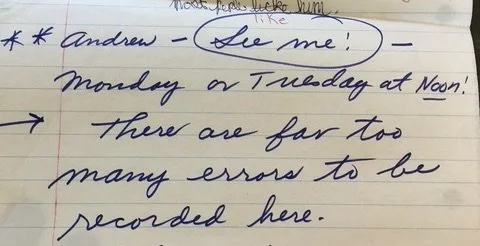 him.
like
** Andrew - See me! -
Monday or Tuesday at Noon!
→ There are far too
many errors to be
recorded here.